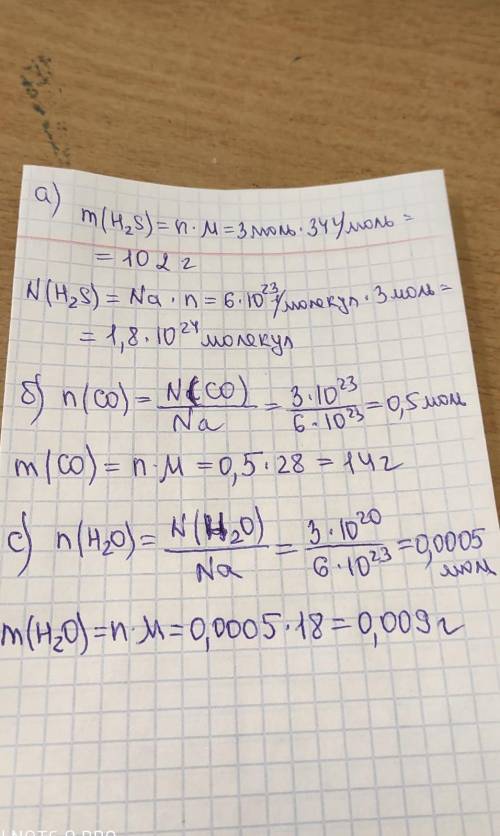 а)
m(H₂S) = n·M = 3 моль·34 г/моль =
= 102 г
N(H₂S) = Na · n = 6·10²³ /молекул · 3 моль =
= 1,8·10²⁴ молекул
б) n(CO) = N(CO)/Na = 3·10²³/6·10²³ = 0,5 мол
m(CO) = n·M = 0,5·28 = 14 г
с) n(H₂O) = N(H₂O)/Na = 3·10²⁰/6·10²³ = 0,0005
мол
m(H₂O) = n·M = 0,0005·18 = 0,009 г